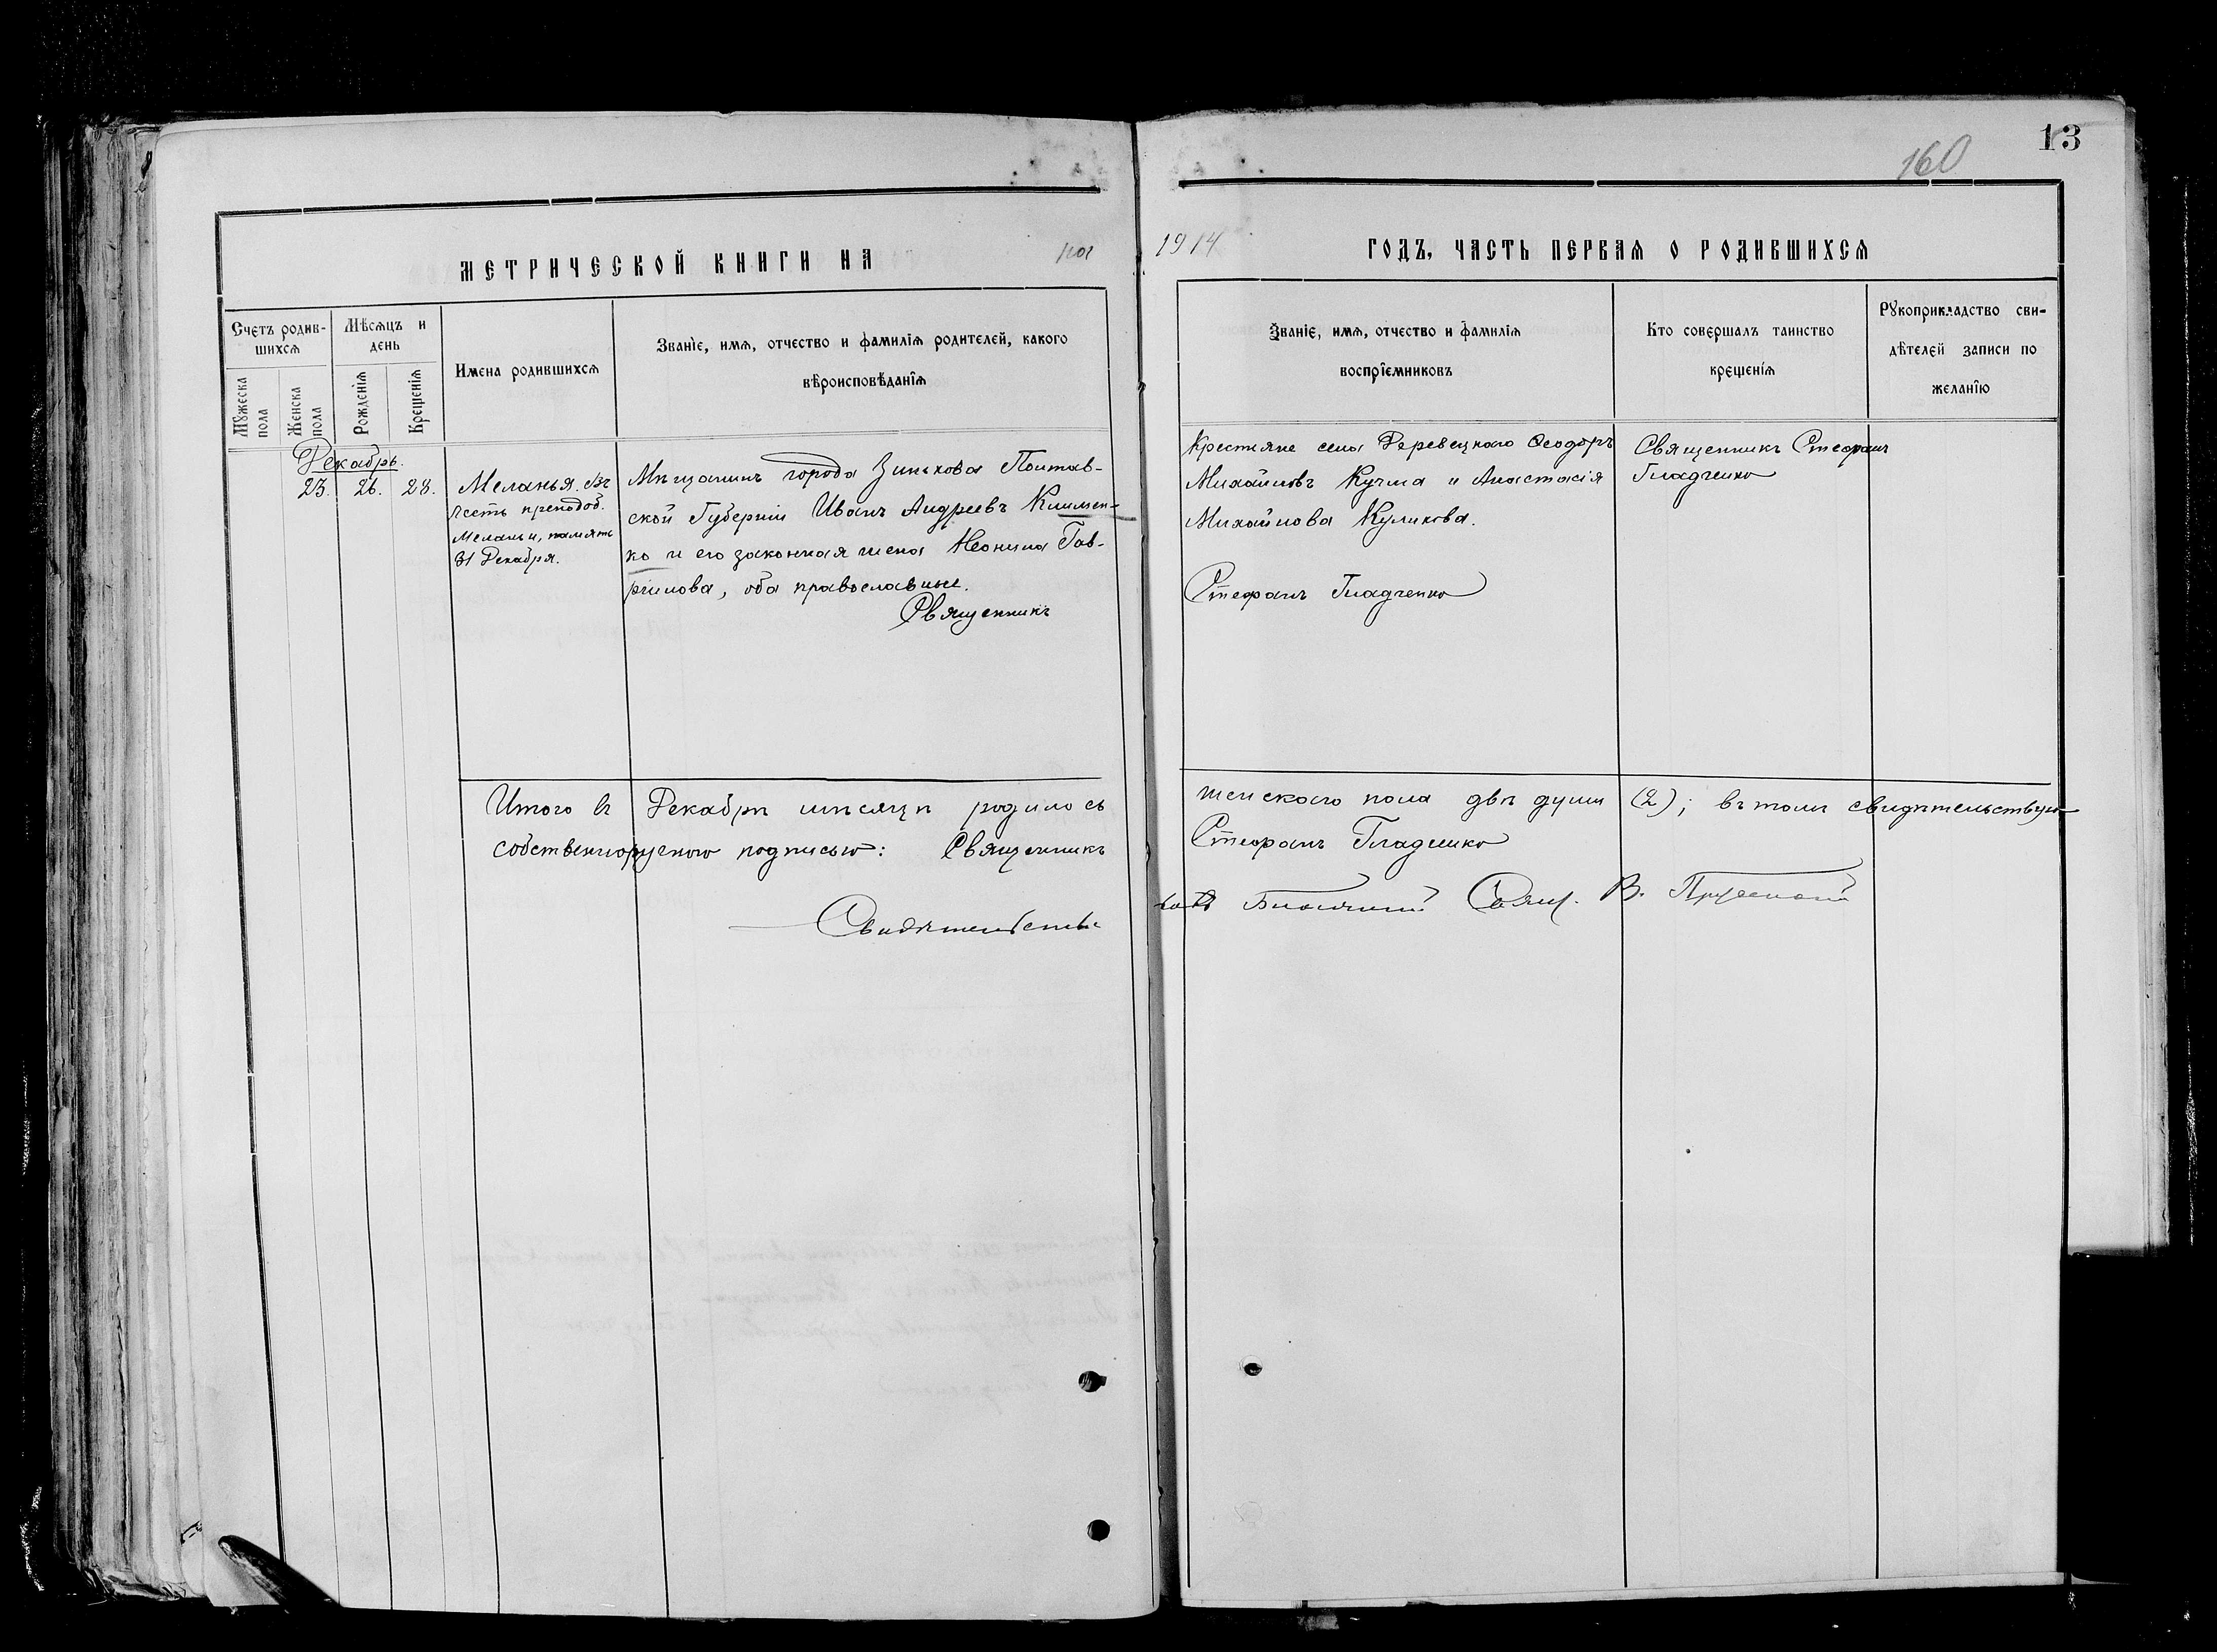 13
160
МЕТРИЧЕСКОЙ КНИГИ НА
1914
ГОДЪ, ЧАСТЬ ПЕРВАЯ О РОДИВШИХСЯ
Счетъ родив-
шихся
Мѣсяцъ и
день
Мужеска
пола
Женска
пола
Рожденія
Крещенія
Имена родившихся
Званіе, имя, отчество и фамилія родителей, какого
вѣроисповѣданія
Званіе, имя, отчество и фамилія
воспріемниковъ
Кто совершалъ таинство
крещенія
Рукоприкладство сви-
дѣтелей записи по
желанію
Декабрь.
23. 26. 28.
Меланья. Въ
честь преподоб.
Меланьи, память
31 Декабря.
Мѣщанинъ города Зинькова Полтав-
ской Губерніи Иванъ Андреевъ Климен-
ко и его законная жена Неонила Гав-
рилова, оба православные.
Священникъ
Крестьяне села Деревецкаго Ѳеодоръ
Михайловъ Кучма и Анастасія
Михайлова Куликова.
Стефанъ Гладченко
Священникъ Стефанъ
Гладченко
Итого въ Декабрѣ мѣсяцѣ родилось
собственноручною подписью: Священникъ
Свидѣтельство
женскаго пола двѣ души (2); въ томъ свидѣтельствую
Стефанъ Гладченко
Свящ. В.